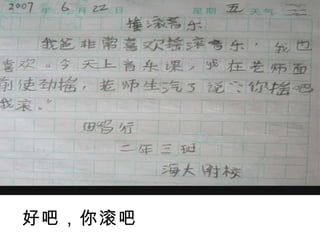 2007 年 6 月 22 日 星期 五 天气
摇滚音乐
我爸非常喜欢摇滚音乐，我也
喜欢。今天上音乐课，我在老师面
前使劲摇，老师生汽了说：“你摇吧
我滚。”
田智行
二年三班
海大附校
好吧，你滚吧